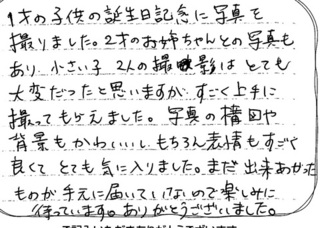 1才の子供の誕生日記念に写真を
撮りました。2才のお姉ちゃんとの写真も
あり、小さい子 2人の撮影はとても
大変だったと思いますが、すごく上手に
撮ってもらえました。写真の構図や
背景もかわいいし、もちろん表情もすごく
良くてとても気に入りました。まだ出来あがった
ものが手元に届いていないので楽しみに
待っています。ありがとうございました。